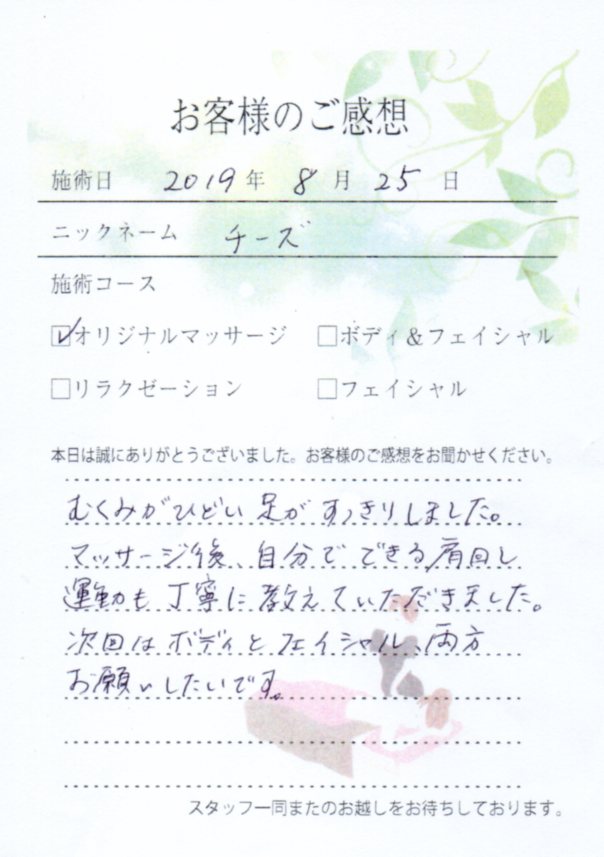 お客様のご感想
施術日 2019年 8月 25日
ニックネーム チーズ
施術コース
☑オリジナルマッサージ □ボディ＆フェイシャル
□リラクゼーション □フェイシャル
本日は誠にありがとうございました。お客様のご感想をお聞かせください。
むくみがひどい足がすっきりしました。
マッサージ後、自分でできる肩回し
運動も丁寧に教えていただきました。
次回はボディとフェイシャル、両方
お願いしたいです。
スタッフ一同またのお越しをお待ちしております。